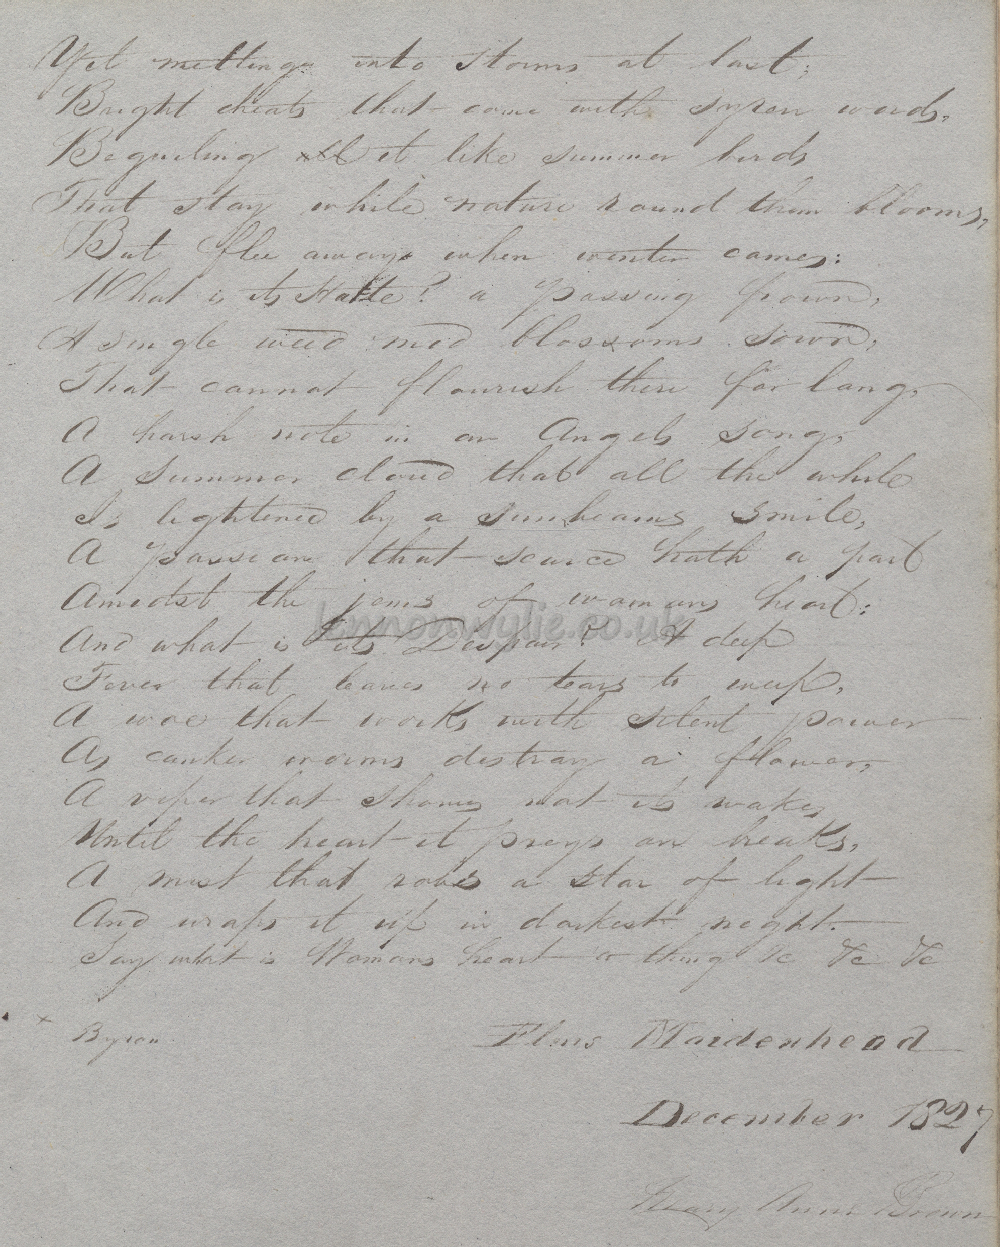 Yet melting into storms at last;
Bright cheats that come with syren words,
Beguiling it like summer birds
That stay while nature round them blooms,
But flee away when winter comes;
What is its Hate? a passing frown,
A single weed mid blossoms sown,
That cannot flourish there for long,
A harsh note in an Angels song,
A summer cloud that all the while
Is lightened by a sunbeams smile,
A passion that scarce hath a part
Amidst the jems of womans heart:
lennonwylie.co.uk
And what is its Despair? A deep
Fever that leaves no tears to weep,
A woe that works with silent power
As canker worms destroy a flower,
A viper that shows not its wake,
Until the heart it preys on breaks,
A mist that robes a star of light
And wraps it up in darkest night.
Say what is Womans heart a thing &c &c &c
x Byron Elms Maidenhead
December 1827
Mary Anne Brown